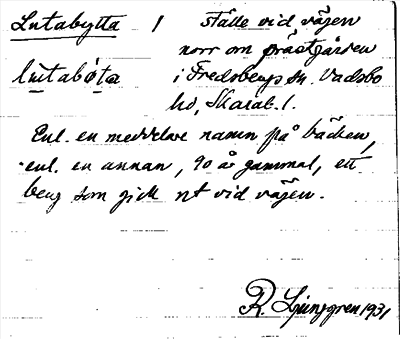 Lutabytta / ställe vid vägen
norr om prästgården
lutabøta i Fredsbergs sn. Vadsbo
hd, Skarab. l.
Enl. en meddelare namn på bäcken,
enl. en annan, 90 år gammal, ett
berg som gick ut vid vägen.
R. Ljunggren 1931